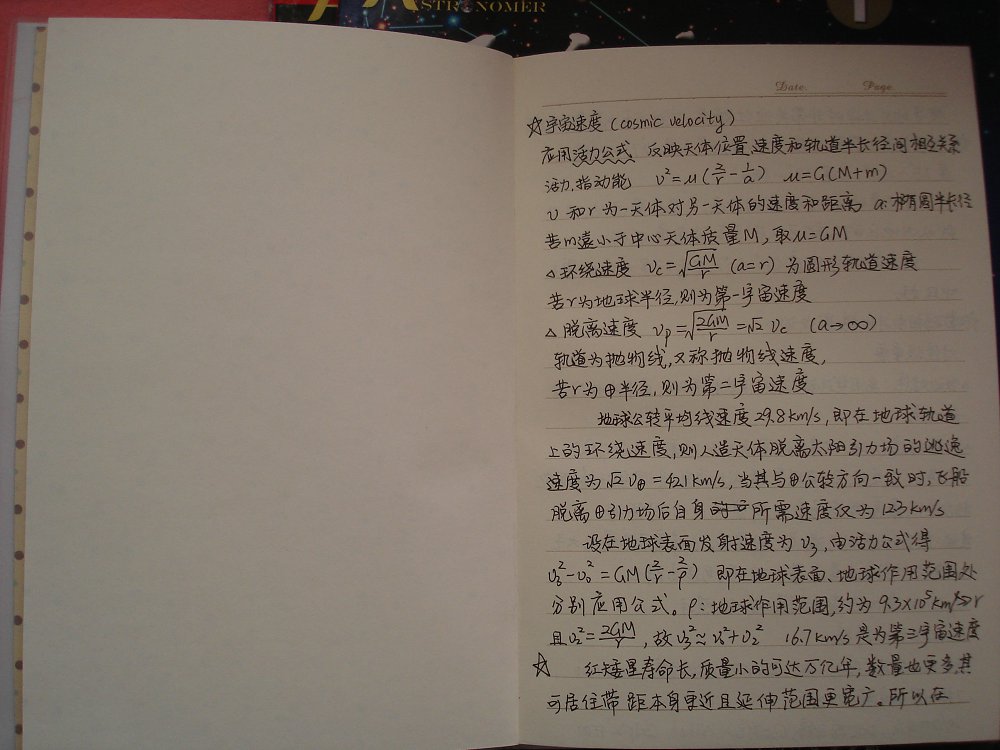 STRONOMER
Date. Page
☆宇宙速度 (cosmic velocity)
应用活力公式 反映天体位置,速度和轨道半长径间相互关系
活力,指动能 υ²=μ(2/r-1/a) μ=G(M+m)
υ和r为一天体对另一天体的速度和距离 a:椭圆半长径
若m远小于中心天体质量M,取μ=GM
△环绕速度 υc=√(GM/r) (a=r) 为圆形轨道速度
若r为地球半径,则为第一宇宙速度
△脱离速度 υp=√(2GM/r)=√2 υc (a→∞)
轨道为抛物线,又称抛物线速度,
若r为⊕半径,则为第二宇宙速度
地球公转平均线速度29.8km/s,即在地球轨道
上的环绕速度,则人造天体脱离太阳引力场的逃逸
速度为√2υ⊕=42.1km/s,当其与⊕公转方向一致时,飞船
脱离⊕引力场后自身所需速度仅为12.3km/s
设在地球表面发射速度为υ3,由活力公式得
υ3²-υ0²=GM(2/r-2/ρ) 即在地球表面、地球作用范围处
分别应用公式。ρ:地球作用范围,约为9.3×10⁵km≫r
且υ2²=2GM/r,故υ3²≈υ0²+υ2² 16.7km/s是为第三宇宙速度
☆ 红矮星寿命长,质量小的可达万亿年,数量也更多,其
可居住带距本身更近且延伸范围更宽广。所以在